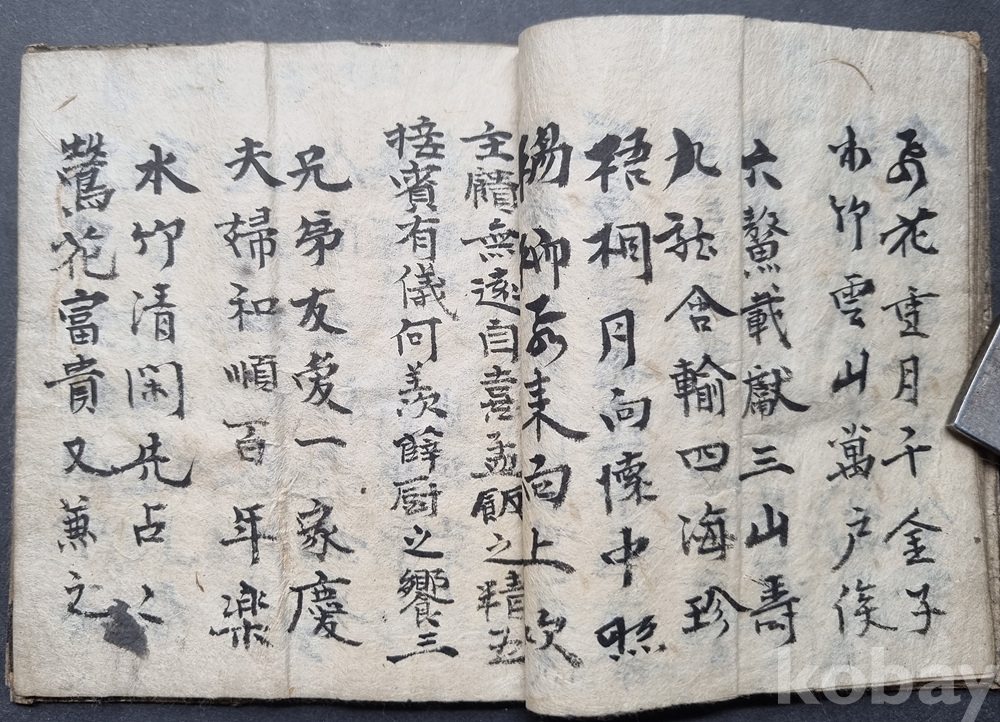 花重月千金子
水竹雲山萬戶侯
六鰲載獻三山壽
九龍含輸四海珍
梧桐月向懷中照
楊柳來面上吹
主饋無遠自喜孟飯之精五
接賓有儀何羨薛厨之饗三
兄弟友愛一家慶
夫婦和順百年樂
水竹清閑先占之
鶯花富貴又兼之
kobay